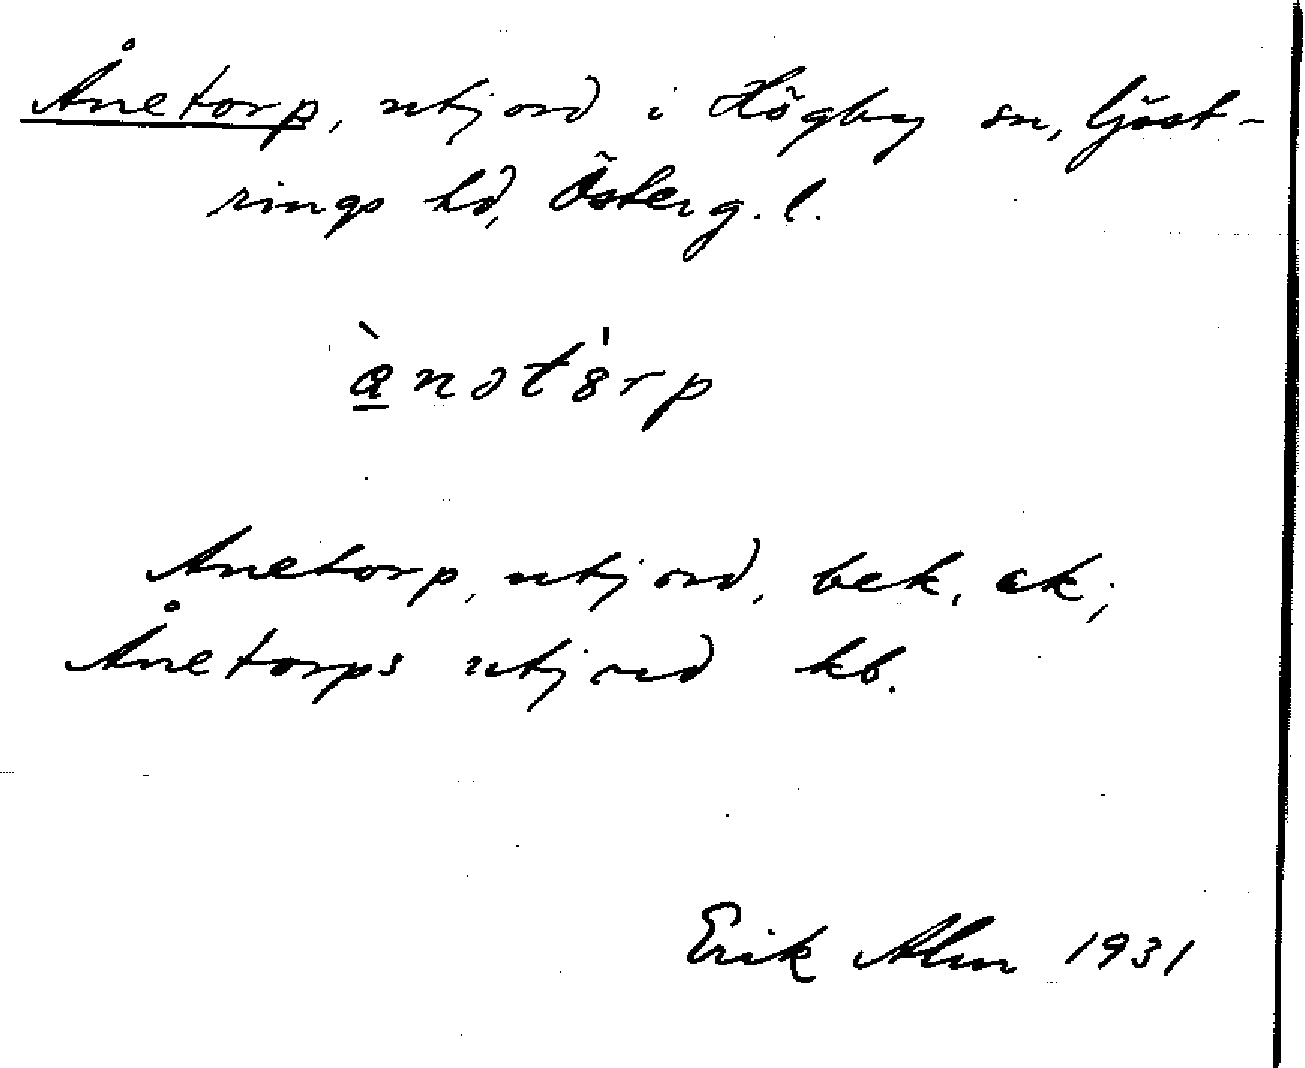 Ånetorp, utjord i Högby sn, Göst-
rings hd, Österg. l.
Anetorp, utjord, bek. ek;
Ånetorps utjord kb.
Erik Alm 1931